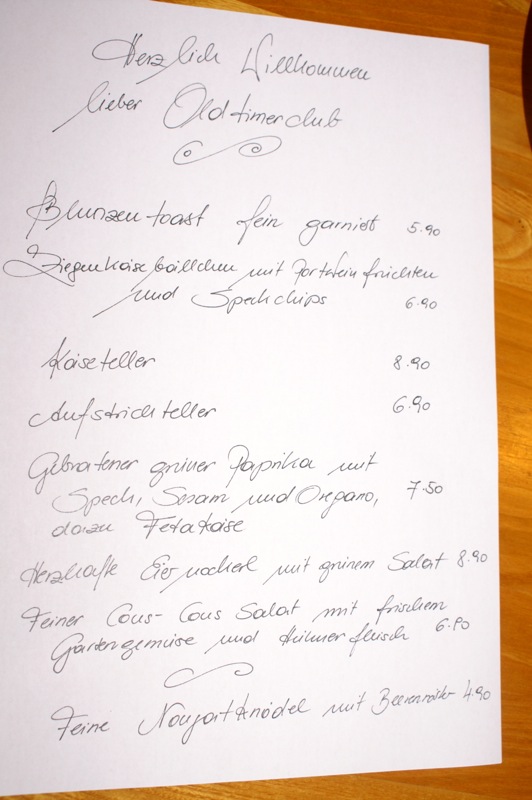 Herzlich Willkommen
lieber Oldtimerclub
Blunzentoast fein garniert 5.90
Ziegenkäsebällchen mit Portweinfrüchten
und Speckchips 6.90
Käseteller 8.90
Aufstrichteller 6.90
Gebratener grüner Paprika mit
Speck, Sesam und Oregano, 7.50
dazu Fetakäse
Herzhafte Eiernockerl mit grünem Salat 8.90
Feiner Cous-Cous Salat mit frischem
Gartengemüse und Hühnerfleisch 6.90
Feine Nougatknödel mit Beerenröster 4.90